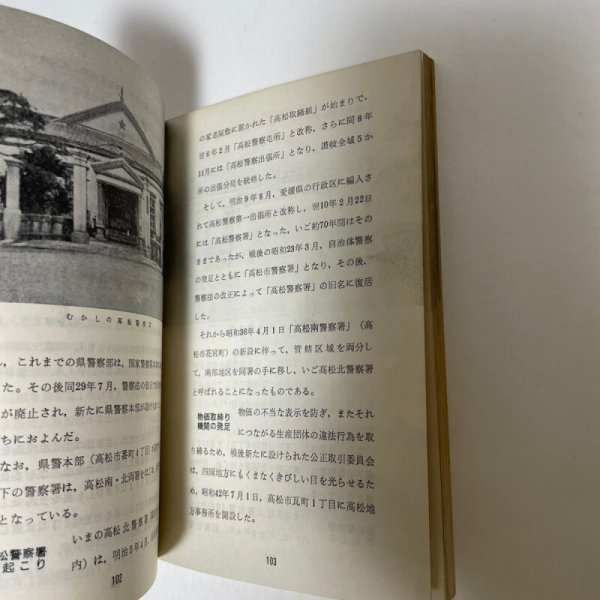 むかしの高松警察署
、これまでの県警察部は、国家警察
た。その後同29年7月、警察法の改正で
が廃止され、新たに県警察本部が設け
ちにおよんだ。
なお、県警本部（高松市番町4丁目）
下の警察署は、高松南・北両署をは
となっている。
松警察署
起こり
いまの高松北警察署
内）は、明治5年4月、
102
の家名屋敷に置かれた「高松取締組」が始まりで、
翌6年2月「高松警察屯所」と改称、さらに同8年
11月には「高松警察出張所」となり、讃岐全域5か
所の出張分局を統轄した。
そして、明治9年8月、愛媛県の行政区に編入さ
れて高松警察第一出張所と改称し、翌10年2月22日
には「高松警察署」となった。いご約70年間はその
ままであったが、戦後の昭和23年3月、自治体警察
の発足とともに「高松市警察署」となり、その後、
警察法の改正によって「高松警察署」の旧名に復活
した。
それから昭和36年4月1日「高松南警察署」（高
松市花宮町）の新設に伴って、管轄区域を両分し
て、南部地区を同署の手に移し、いご高松北警察署
と呼ばれることになったものである。
物価取締り
機関の発足
物価の不当な表示を防ぎ、またそれ
につながる生産団体の違法行為を取
り締るため、戦後新たに設けられた公正取引委員会
は、四国地方にもくまなくきびしい目を光らせるた
め、昭和42年7月1日、高松市瓦町1丁目に高松地
方事務所を開設した。
103